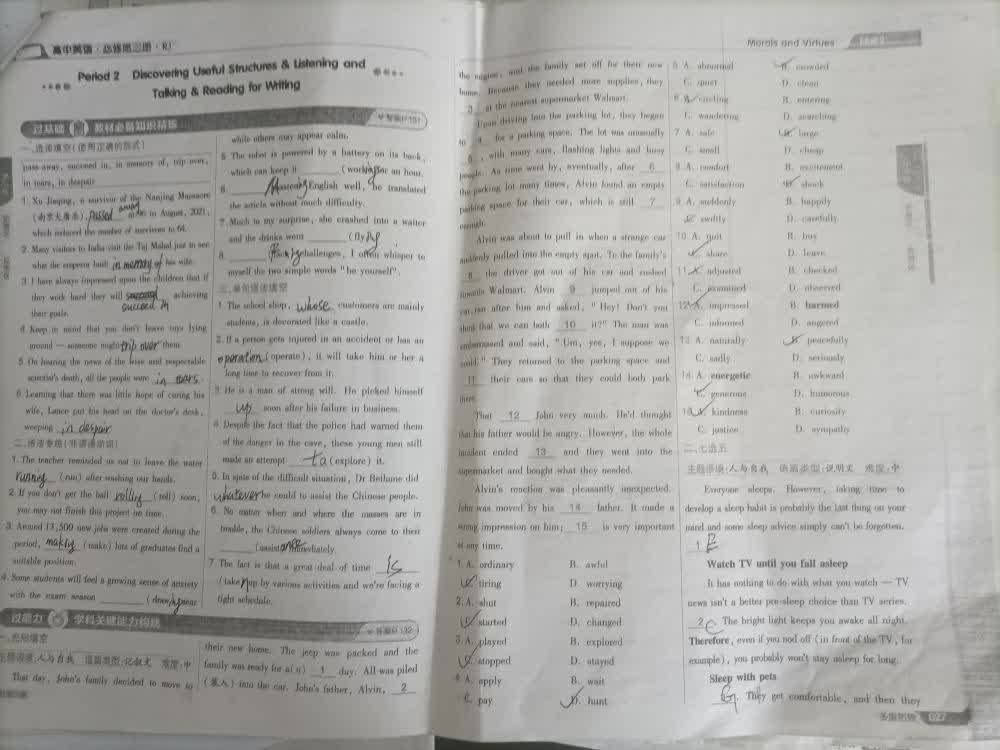 高中英语·必修第三册·RJ
Period 2 Discovering Useful Structures & Listening and
Talking & Reading for Writing
过基础 教材必备知识精练
一、选词填空(使用正确的形式)
pass away, succeed in, in memory of, trip over,
in tears, in despair
1. Xu Jiaqing, a survivor of the Nanjing Massacre
(南京大屠杀), passed away in August, 2021,
which reduced the number of survivors to 64.
2. Many visitors to India visit the Taj Mahal just to see
what the emperor built in memory of his wife.
3. I have always impressed upon the children that if
they work hard they will succeed in achieving
their goals.
4. Keep in mind that you don't leave toys lying
ground — someone might trip over them.
5. On hearing the news of the wise and respectable
scientist's death, all the people were in tears.
6. Learning that there was little hope of curing his
wife, Lance put his head on the doctor's desk,
weeping in despair
1. The teacher reminded us not to leave the water
(run) after washing our hands.
2. If you don't get the ball (roll) soon,
you may not finish this project on time.
3. Around 13,500 new jobs were created during the
period, (make) lots of graduates find a
suitable position.
4. Some students will feel a growing sense of anxiety
with the exam season (draw) near
while others may appear calm.
5. The robot is powered by a battery on its back,
which can keep it (work) for an hour.
6. English well, he translated
the article without much difficulty.
7. Much to my surprise, she crashed into a waiter
and the drinks went (fly).
8. challenges, I often whisper to
myself the two simple words "be yourself".
三、单句语法填空
1. The school shop, whose customers are mainly
students, is decorated like a castle.
2. If a person gets injured in an accident or has an
operation (operate), it will take him or her a
long time to recover from it.
3. He is a man of strong will. He picked himself
up soon after his failure in business.
4. Despite the fact that the police had warned them
of the danger in the cave, these young men still
made an attempt to (explore) it.
5. In spite of the difficult situation, Dr Bethune did
whatever he could to assist the Chinese people.
6. No matter when and where the masses are in
trouble, the Chinese soldiers always come to their
(assist) immediately.
7. The fact is that a great deal of time is
(take) up by various activities and we're facing a
tight schedule.
过能力 学科关键能力构建
一、完形填空
主题语境:人与自我 语篇类型:记叙文 难度:中
That day, John's family decided to move to
their new home. The jeep was packed and the
family was ready for a(n) 1 day. All was piled
(装入) into the car. John's father, Alvin, 2
Morals and Virtues
the engine, and the family set off for their new
home. Because they needed more supplies, they
3 at the nearest supermarket Walmart.
Upon driving into the parking lot, they began
to 4 for a parking space. The lot was unusually
5, with many cars, flashing lights and busy
people. As time went by, eventually, after 6
the parking lot many times, Alvin found an empty
parking space for their car, which is still 7
enough.
Alvin was about to pull in when a strange car
suddenly pulled into the empty spot. To the family's
8 the driver got out of his car and rushed
towards Walmart. Alvin 9 jumped out of his
car, ran after him and asked, "Hey! Don't you
think that we can both 10 it?" The man was
embarrassed and said, "Um, yes, I suppose we
could." They returned to the parking space and
11 their cars so that they could both park
there.
That 12 John very much. He'd thought
that his father would be angry. However, the whole
incident ended 13 and they went into the
supermarket and bought what they needed.
Alvin's reaction was pleasantly unexpected.
John was moved by his 14 father. It made a
strong impression on him; 15 is very important
at any time.
1. A. ordinary B. awful
C. tiring D. worrying
2. A. shut B. repaired
C. started D. changed
3. A. played B. explored
C. stopped D. stayed
4. A. apply B. wait
C. pay D. hunt
5. A. abnormal B. crowded
C. quiet D. clean
6. A. circling B. entering
C. wandering D. searching
7. A. safe B. large
C. small D. cheap
8. A. comfort B. excitement
C. satisfaction D. shock
9. A. suddenly B. happily
C. swiftly D. carefully
10. A. quit B. buy
C. share D. leave
11. A. adjusted B. checked
C. examined D. observed
12. A. impressed B. harmed
C. informed D. angered
13. A. naturally B. peacefully
C. sadly D. seriously
14. A. energetic B. awkward
C. generous D. humorous
15. A. kindness B. curiosity
C. justice D. sympathy
二、七选五
主题语境:人与自我 语篇类型:说明文 难度:中
Everyone sleeps. However, taking time to
develop a sleep habit is probably the last thing on your
mind and some sleep advice simply can't be forgotten.
1 E
Watch TV until you fall asleep
It has nothing to do with what you watch — TV
news isn't a better pre-sleep choice than TV series.
2 C The bright light keeps you awake all night.
Therefore, even if you nod off (in front of the TV, for
example), you probably won't stay asleep for long.
Sleep with pets
G. They get comfortable, and then they
027